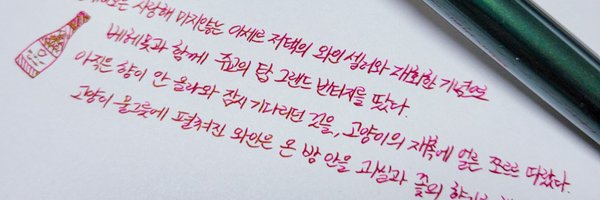 사랑해 마지않는 아세르 저택의 와인셀러와 재회한 기념으로
베레모과 함께 쥬교의 탑 그랜드 빈티지를 땄다.
아직은 향이 안 올라와 잠시 기다리던 것을, 고양이의 재촉에 얼른 쪼르르 따랐다.
고양이 물그릇에 펼쳐진 와인은 온 방 안을 과실과 꽃의 향기로